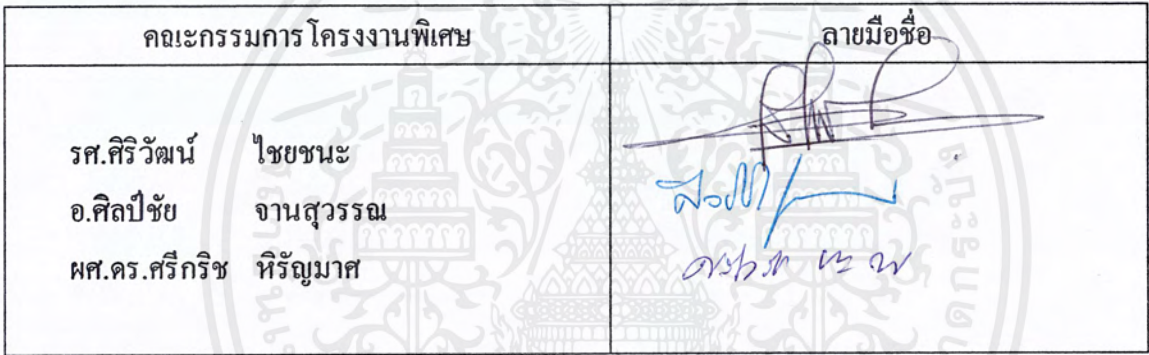 คณะกรรมการโครงงานพิเศษ ลายมือชื่อ
รศ.ศิริวัฒน์ ไชยชนะ
อ.ศิลป์ชัย จานสุวรรณ
ผศ.ดร.ศรีกริช หิรัญมาศ